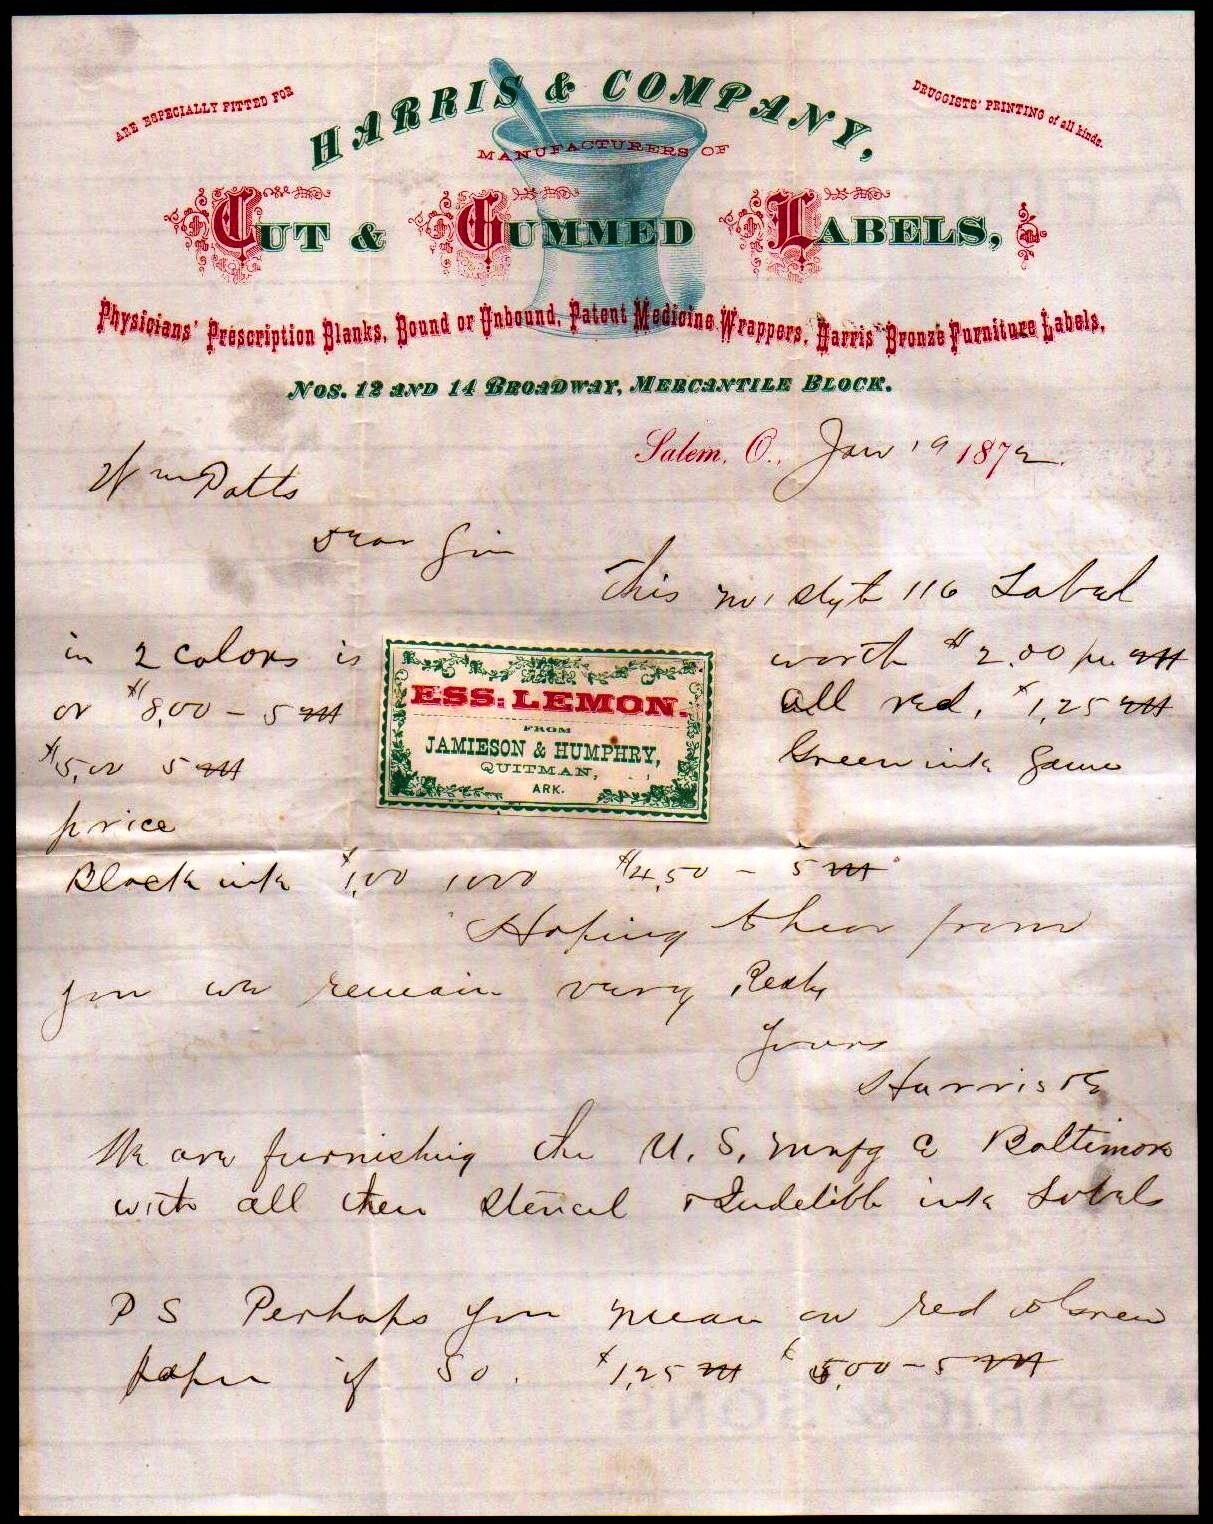 ARE ESPECIALLY FITTED FOR
HARRIS & COMPANY,
DRUGGISTS' PRINTING of all kinds.
MANUFACTURERS OF
CUT & GUMMED LABELS,
Physicians' Prescription Blanks, Bound or Unbound, Patent Medicine Wrappers, Harris' Bronze Furniture Labels,
Nos. 12 AND 14 BROADWAY, MERCANTILE BLOCK.
Salem, O., Jan 19 1872
Wm Potts
Dear Sir
This no, style 116 Label
in 2 colors is worth $2.00 per M
or $8,00 - 5 M all red, $1,25 M
$5,00 5 M Green ink Same
price
ESS: LEMON.
FROM
JAMIESON & HUMPHRY,
QUITMAN,
ARK.
Black ink $1,00 1000 $4,50 - 5 M
Hoping t hear from
you we remain very Resty
Yours
Harris & Co
We are furnishing the U. S, Mnfg C Baltimore
with all their Stencil & Indelible ink Labels
P S Perhaps you mean on red or Green
paper if So. $1,25 M $5,00 - 5 M